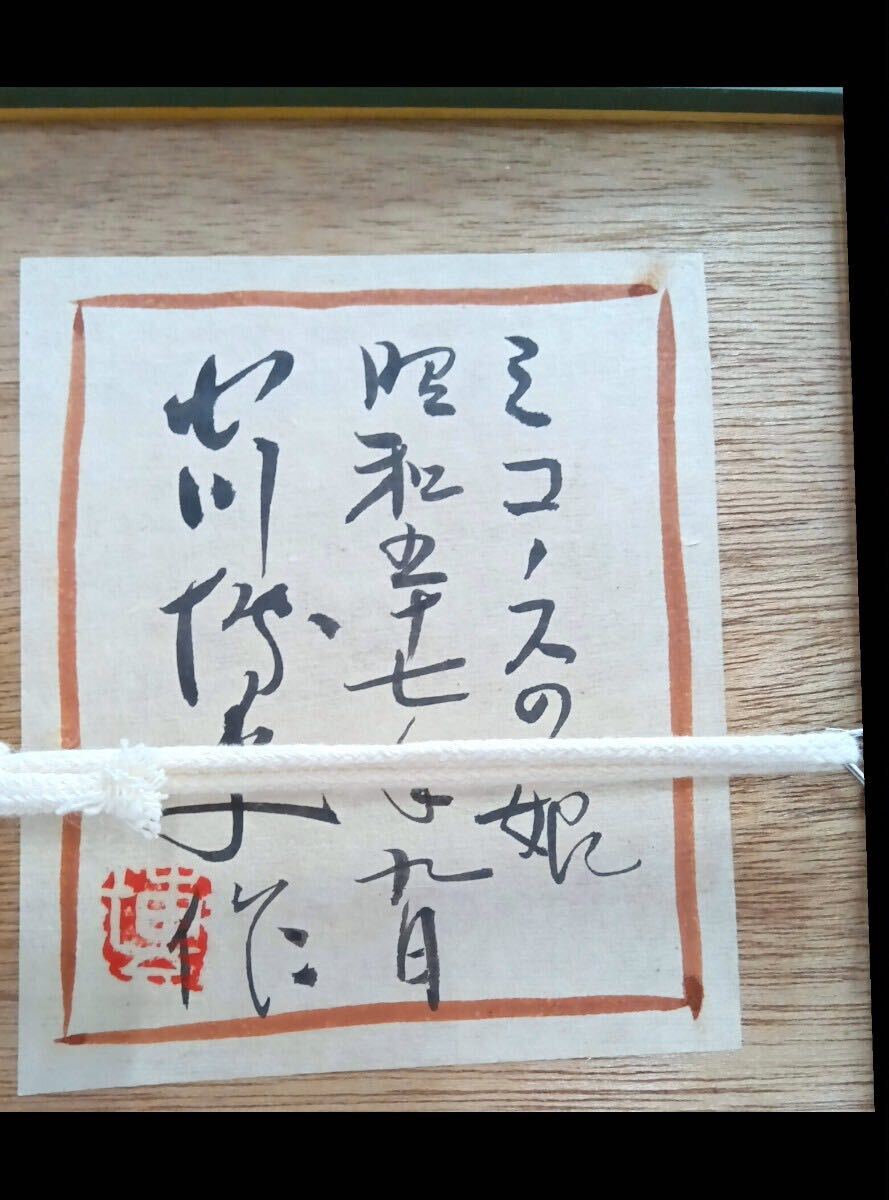 ミコノスの娘
昭和五十七年九月
川博子作
博